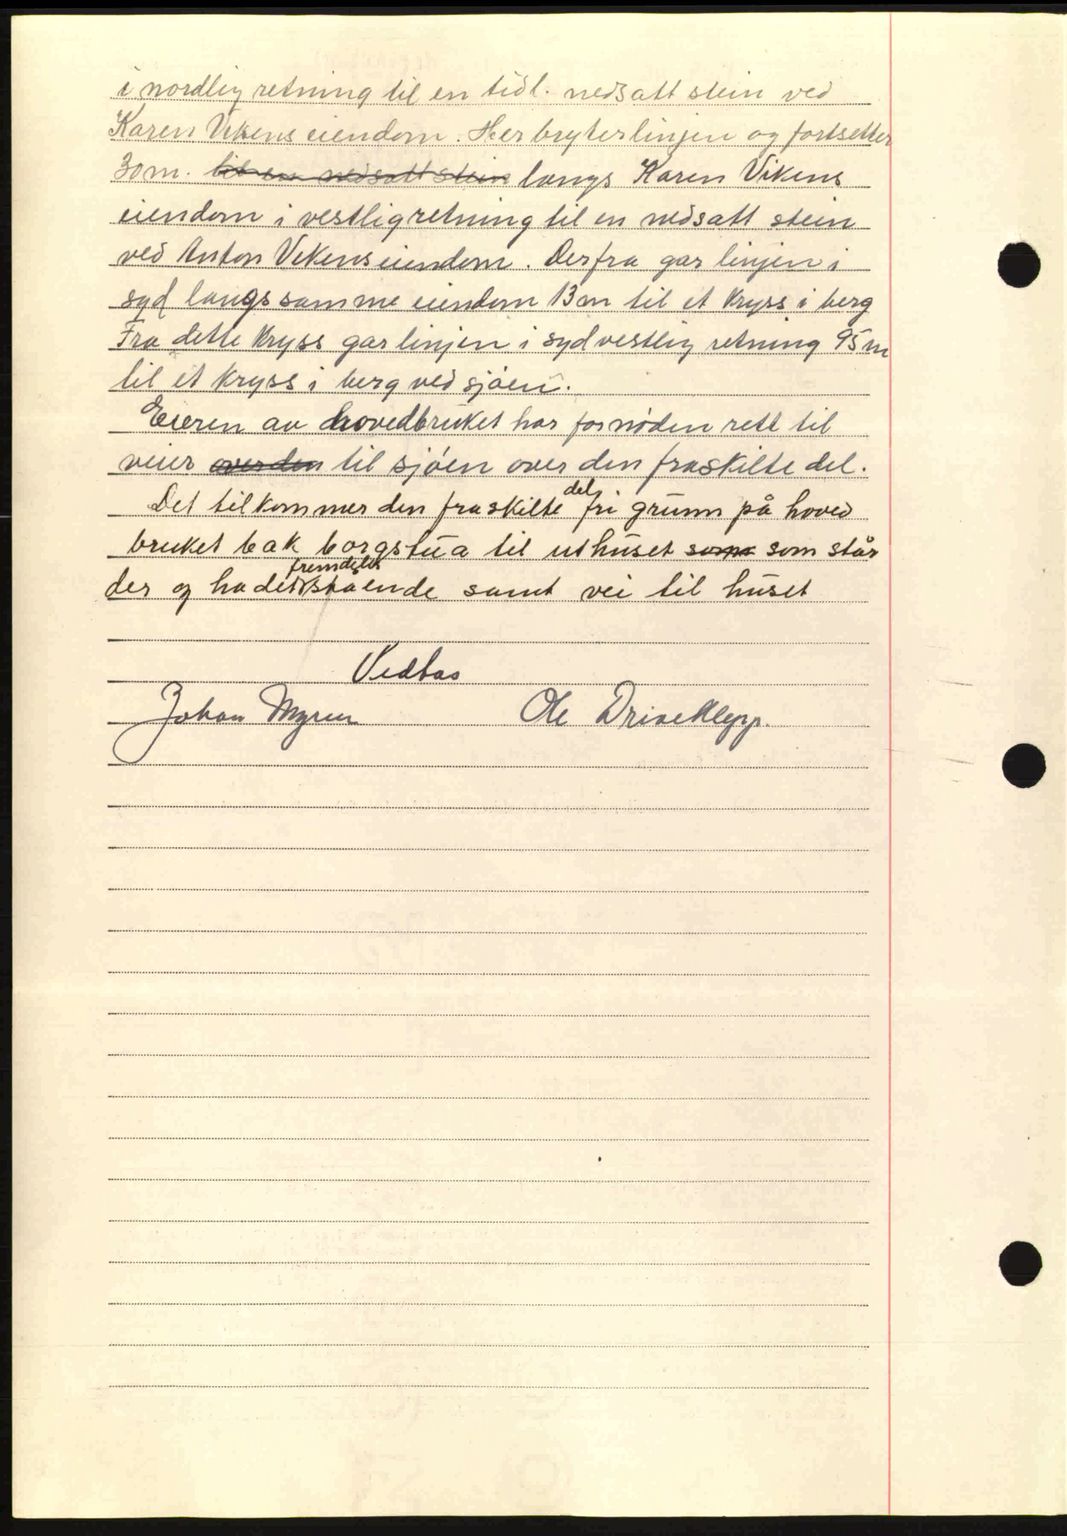 i nordlig retning til en tidl. nedsatt stein ved
Karen Vikens eiendom. Her bryter linjen og fortsetter
30 m. til en nedsatt stein langs Karen Vikens
eiendom i vestlig retning til en nedsatt stein
ved Anton Vikens eiendom. Derfra gar linjen i
syd langs samme eiendom 13 m til et kryss i berg
Fra dette kryss gar linjen i sydvestlig retning 95 m
til et kryss i berg ved sjøen.
Eieren av hovedbruket har fornøden rett til
veier over den til sjøen over den fraskilte del.
Det tilkommer den fraskilte del fri grunn på hoved
bruket bak borgstua til uthuset som som står
der og ha det fremdeles stående samt vei til huset
Vedtas
Johan Myren Ole Driveklepp.